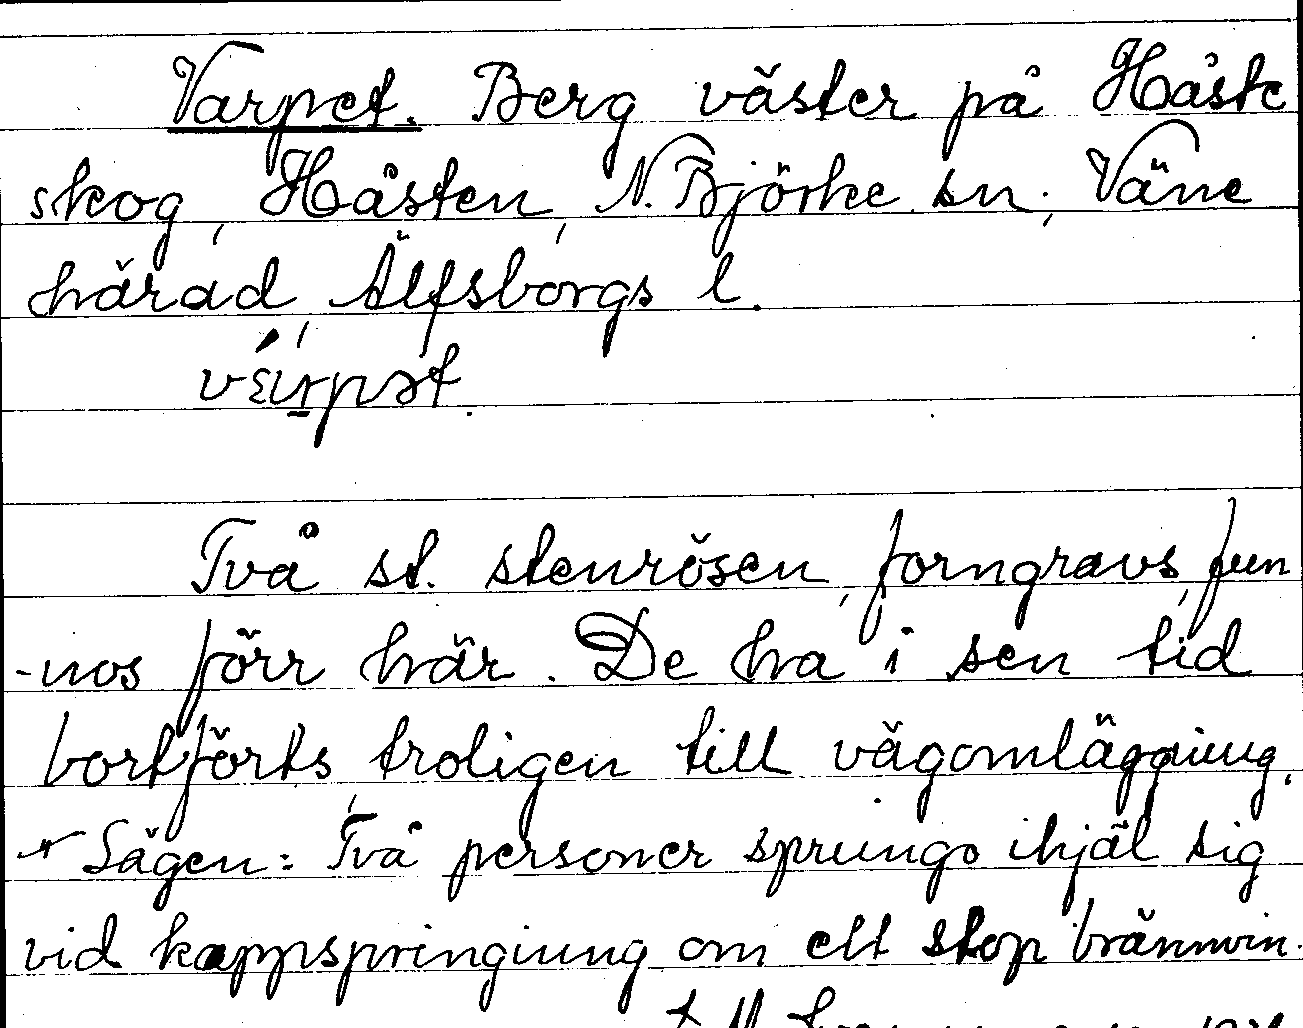 Varpet. Berg väster på Håste
skog, Håsten, N. Björke sn., Väne
härad, Älfsborgs l.
Två st. stenrösen, forngravs, fun
-nos förr här. De ha i sen tid
bortförts troligen till vägomläggning.
Sägen: Två personer sprungo ihjäl sig
vid kappspringning om ett stop brännvin.